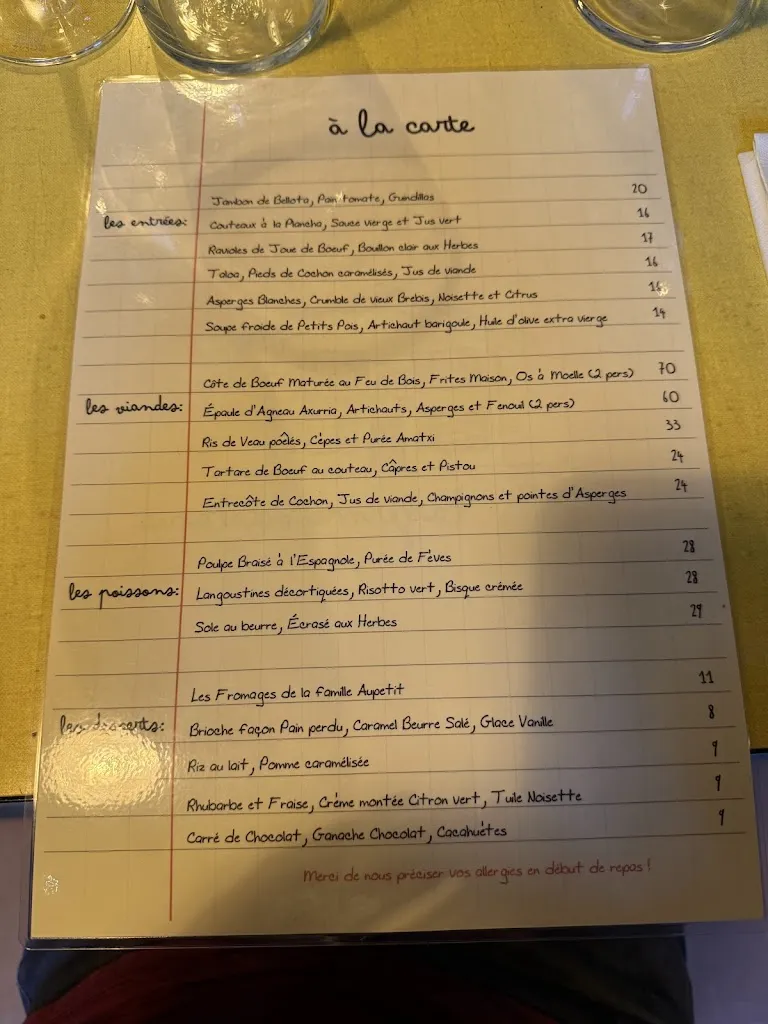 à la carte
Jambon de Bellota, Pain tomate, Guindillas 20
les entrées:
Couteaux à la Plancha, Sauce vierge et Jus vert 16
Ravioles de Joue de Boeuf, Bouillon clair aux Herbes 17
Taloa, Pieds de Cochon caramélisés, Jus de viande 16
Asperges Blanches, Crumble de vieux Brebis, Noisette et Citrus
Soupe froide de Petits Pois, Artichaut barigoule, Huile d'olive extra vierge 14
Côte de Boeuf Maturée au Feu de Bois, Frites Maison, Os à Moelle (2 pers) 70
les viandes:
Épaule d'Agneau Axurria, Artichauts, Asperges et Fenouil (2 pers) 60
Ris de Veau poêlés, Cèpes et Purée Amatxi 33
Tartare de Boeuf au couteau, Câpres et Pistou 24
Entrecôte de Cochon, Jus de viande, Champignons et pointes d'Asperges 24
Poulpe Braisé à l'Espagnole, Purée de Fèves 28
les poissons:
Langoustines décortiquées, Risotto vert, Bisque crémée 28
Sole au beurre, Écrasé aux Herbes 29
Les Fromages de la famille Aupetit 11
les desserts:
Brioche façon Pain perdu, Caramel Beurre Salé, Glace Vanille 8
Riz au lait, Pomme caramélisée 9
Rhubarbe et Fraise, Crème montée Citron vert, Tuile Noisette 9
Carré de Chocolat, Ganache Chocolat, Cacahuètes 9
Merci de nous préciser vos allergies en début de repas !